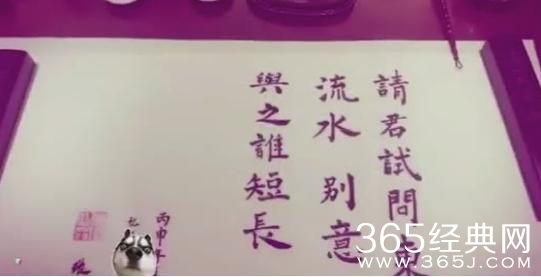 請君試問
流水别意
與之誰短長
丙申
365经典网
WWW.365J.COM